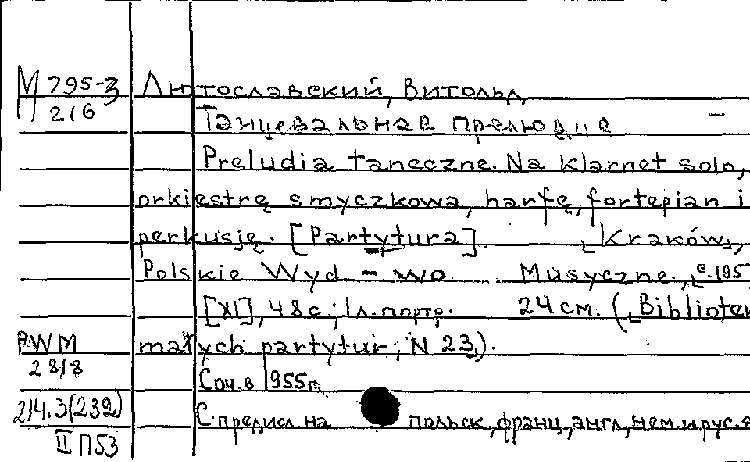 М 795-3 Лютославский, Витольд
216 Танцевальная прелюдия
Preludia taneczne. Na klarnet solo,
orkiestrę smyczkowa, harfę, fortepian i
perkusję. [Partytura]. Kraków,
Polskie Wyd-wo Musyczne, c.195
[XI], 48 с.; 1 л. портр. 24 см. (Bibliotek
PWM małych partytur, N 23).
2818 Соч. в 1955 г.
214.3(239) С предисл. на польск, франц, англ, нем. и рус. я
II П53